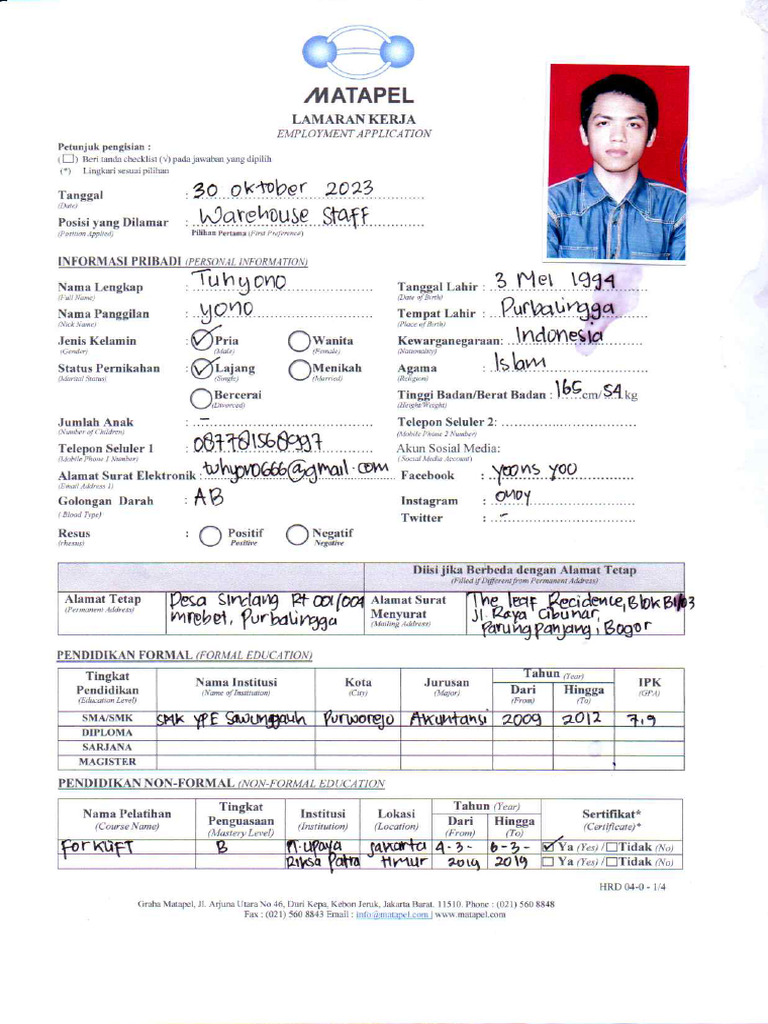 MATAPEL
LAMARAN KERJA
EMPLOYMENT APPLICATION
Petunjuk pengisian :
(☐) Beri tanda checklist (√) pada jawaban yang dipilih
(*) Lingkari sesuai pilihan
Tanggal : 30 Oktober 2023
(Date)
Posisi yang Dilamar : Warehouse Staff
(Position Applied) Pilihan Pertama (First Preference)
INFORMASI PRIBADI (PERSONAL INFORMATION)
Nama Lengkap : Tuhyono Tanggal Lahir : 3 Mei 1994
(Full Name) (Date of Birth)
Nama Panggilan : yono Tempat Lahir : Purbalingga
(Nick Name) (Place of Birth)
Jenis Kelamin : Pria Wanita Kewarganegaraan: Indonesia
(Gender) (Male) (Female) (Nationality)
Status Pernikahan : Lajang Menikah Agama : Islam
(Marital Status) (Single) (Married) (Religion)
Bercerai Tinggi Badan/Berat Badan : 165 cm/ 54 kg
(Divorced) (Height/Weight)
Jumlah Anak : - Telepon Seluler 2:
(Number of Children) (Mobile Phone 2 Number)
Telepon Seluler 1 : 087781568997 Akun Sosial Media:
(Mobile Phone 1 Number) (Social Media Account)
Alamat Surat Elektronik : tuhyono666@gmail.com Facebook : yoons yoo
(Email Address 1)
Golongan Darah : AB Instagram : onoy
(Blood Type) Twitter : -
Resus : Positif Negatif
(rhesus) Positive Negative
Diisi jika Berbeda dengan Alamat Tetap
(Filled if Different from Permanent Address)
Alamat Tetap Desa Sindang Rt 001/004 Alamat Surat The leaf Recidence, Blok B1/03
(Permanent Address) mrebet, Purbalingga Menyurat Jl. Raya Cibunar,
(Mailing Address) Parungpanjang, Bogor
PENDIDIKAN FORMAL (FORMAL EDUCATION)
Tingkat Pendidikan Nama Institusi Kota Jurusan Tahun (Year) IPK
(Education Level) (Name of Institution) (City) (Major) Dari (From) Hingga (To) (GPA)
SMA/SMK SMK YPE Sawunggalih Purworejo Akuntansi 2009 2012 7,9
DIPLOMA
SARJANA
MAGISTER
PENDIDIKAN NON-FORMAL (NON-FORMAL EDUCATION
Nama Pelatihan Tingkat Penguasaan Institusi Lokasi Tahun (Year) Sertifikat*
(Course Name) (Mastery Level) (Institution) (Location) Dari (From) Hingga (To) (Certificate)*
Forklift B PT. Upaya Jakarta 4-3- 6-3- ☑ Ya (Yes) /☐Tidak (No)
Riksa Patra timur 2019 2019 ☐ Ya (Yes) /☐Tidak (No)
HRD 04-0 - 1/4
Graha Matapel, Jl. Arjuna Utara No 46, Duri Kepa, Kebon Jeruk, Jakarta Barat. 11510. Phone : (021) 560 8848
Fax : (021) 560 8843 Email : info@matapel.com | www.matapel.com